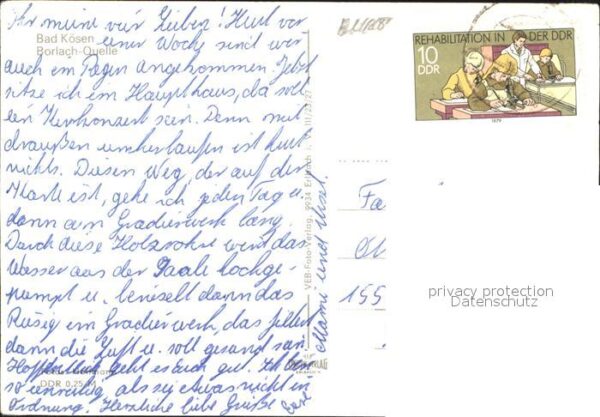 Ihr meine vier Lieben! Heut vor
Bad Kösen
einer Woche sind wir
Borlach-Quelle
auch im Regen angekommen. Jetzt
sitze ich im Haupthaus, da soll
ein Kurkonzert sein. Denn mit
draußen umherlaufen ist heut
nichts. Diesen Weg, der auf der
Karte ist, gehe ich jeden Tag u.
dann am Gradierwerk lang.
Durch diese Holzrohre wird das
Wasser aus der Saale hochge-
pumpt u. berieselt dann das
Reisig im Gradierwerk, das filtert
dann die Luft u. soll gesund sein.
Hoffentlich geht es Euch gut. Ich bin
so unruhig, als sei etwas nicht in
DDR 0,25 M
Ordnung. Herzliche liebe Grüße Eure
Mami und
VEB-Foto-Verlag, 9934 Erlbach i. V.
REHABILITATION IN DER DDR
10
DDR
1979
Fa
155
privacy protection
Datenschutz